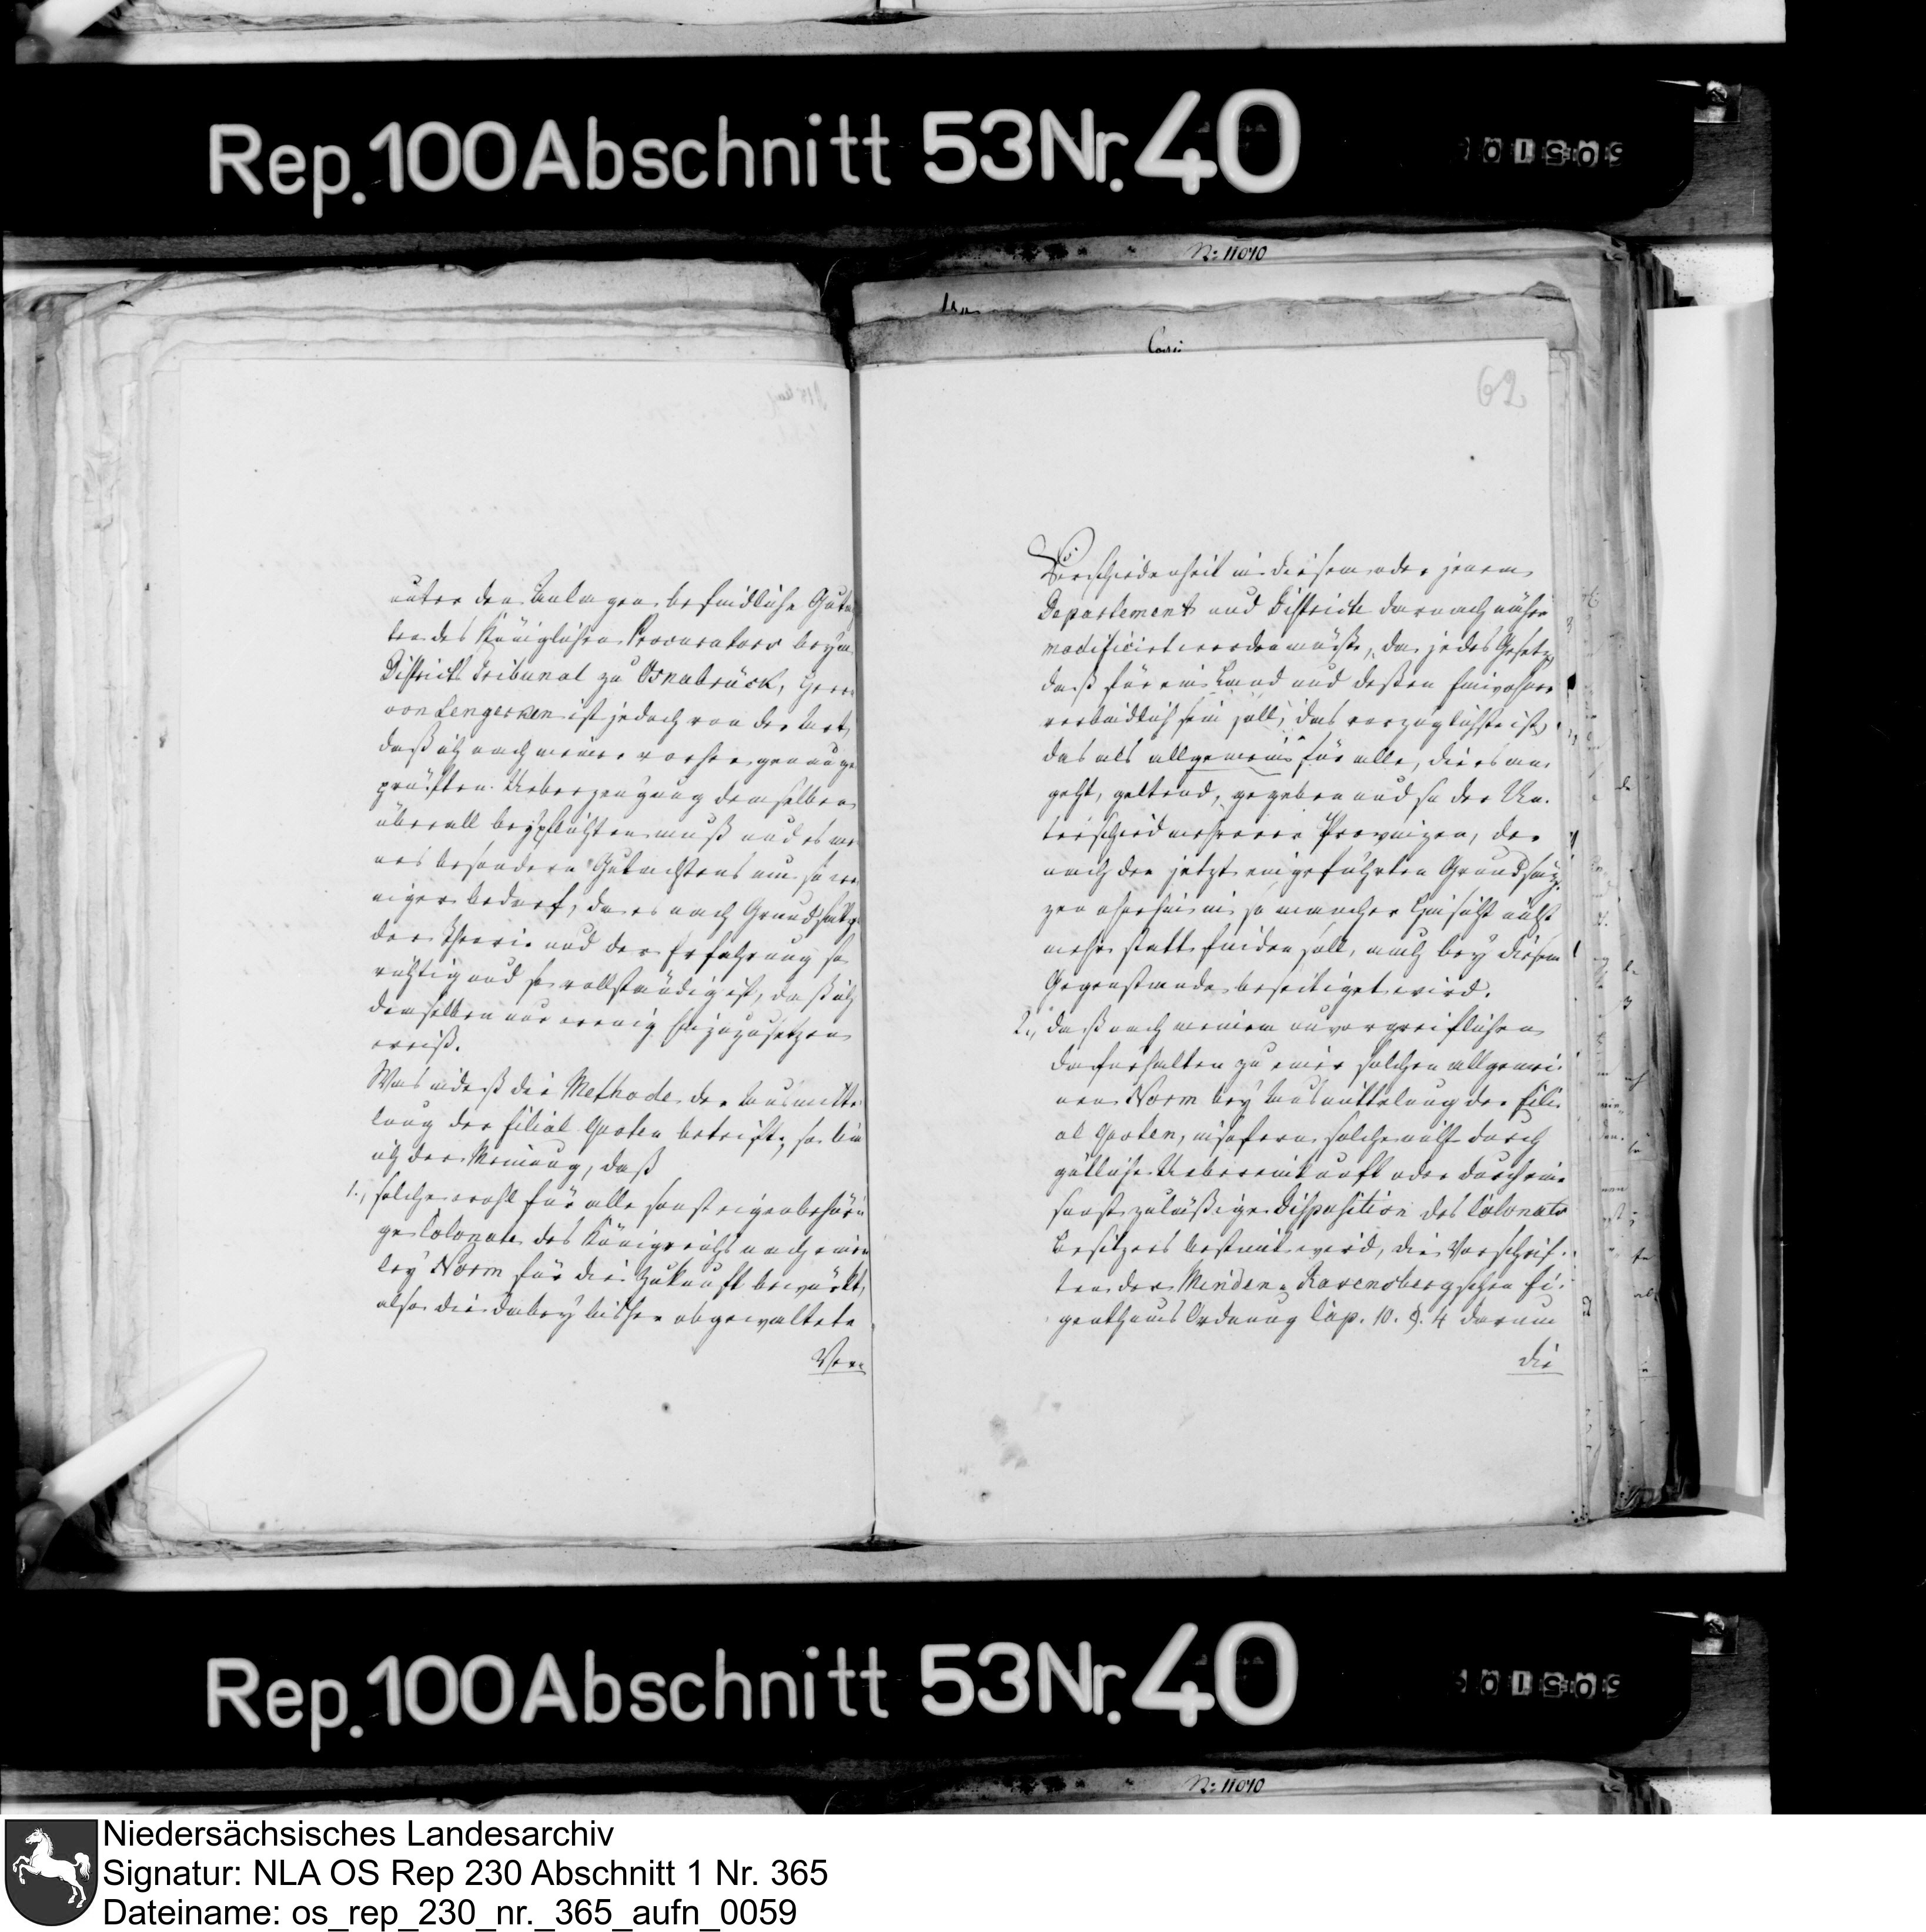 Rep. 100 Abschnitt 53 Nr. 40
No 11010
62
unter den Anlagen befindliche Gutach
ten des Königlichen Procurators beym
District Tribunal zu Osnabrück, Herrn
von Lengerken ist jedoch von der Art,
daß ich nach meiner vorher genau ge
prüften Ueberzeugung demselben
überall beypflichten muß und es mei
nes besondern Gutachtens um so we
niger bedarf, da es nach Grundsätzen
der Theorie und der Erfahrung so
richtig und so vollständig ist, daß ich
demselben nur wenig hinzuzusetzen
weiß.
Was indeß die Methode der Ausmitte
lung der filial Quoten betrift, so bin
ich der Meinung, daß
1., solche wohl für alle sonst eigenbehöri
ge Colonate des Königreichs nach einer
ley Norm für die Zukunft bewürkt,
also die dabey bisher obgewaltete
Ver-
Verschiedenheit in diesem oder jenem
Departement und Districte darnach näher
modificirt werden müßte, da jedes Gesetz,
daß für ein Land und deßen Einwohner
verbindlich sein soll, das vorzüglichste ist,
das als allgemein für alle, die es an
geht, geltend, gegeben und so der Un-
terscheid mehrerer Provinzen, der
nach den jetzt eingeführten Grundsät-
zen ohnehin in so mancher Hinsicht nicht
mehr statt finden soll, auch bey diesem
Gegenstande beseitiget wird.
2., daß nach meinem unvorgreiflichen
Dafürhalten zu einer solchen allgemei-
nen Norm bey Ausmittelung der fili-
al Quoten, insofern solche nicht durch
gütliche Uebereinkunft oder durch eine
sonst zuläßige Disposition des Colonats
Besitzers bestimt wird, die Vorschrif-
ten der Minden-Ravensbergschen Ei-
genthums Ordnung Cap. 10. §. 4 darum
die
Rep. 100 Abschnitt 53 Nr. 40
No 11010
Niedersächsisches Landesarchiv
Signatur: NLA OS Rep 230 Abschnitt 1 Nr. 365
Dateiname: os_rep_230_nr._365_aufn_0059